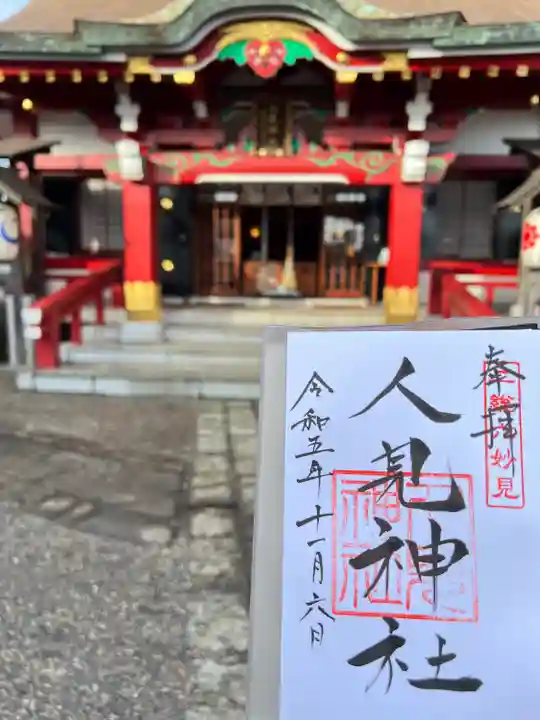 奉拝
上総 妙見
人見神社
令和五年十一月六日